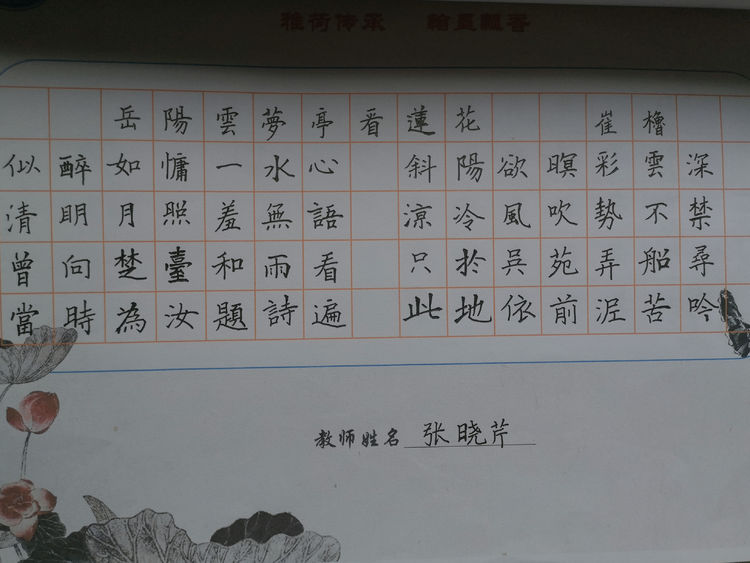 雅荷传承 翰墨飘香
岳陽雲夢亭看蓮花 崔櫓
似醉如慵一水心 斜陽欲暝彩雲深
清明月照羞無語 涼冷風吹勢不禁
曾向楚臺和雨看 只於吳苑弄船尋
當時為汝題詩遍 此地依前泥苦吟
教师姓名 张晓芹